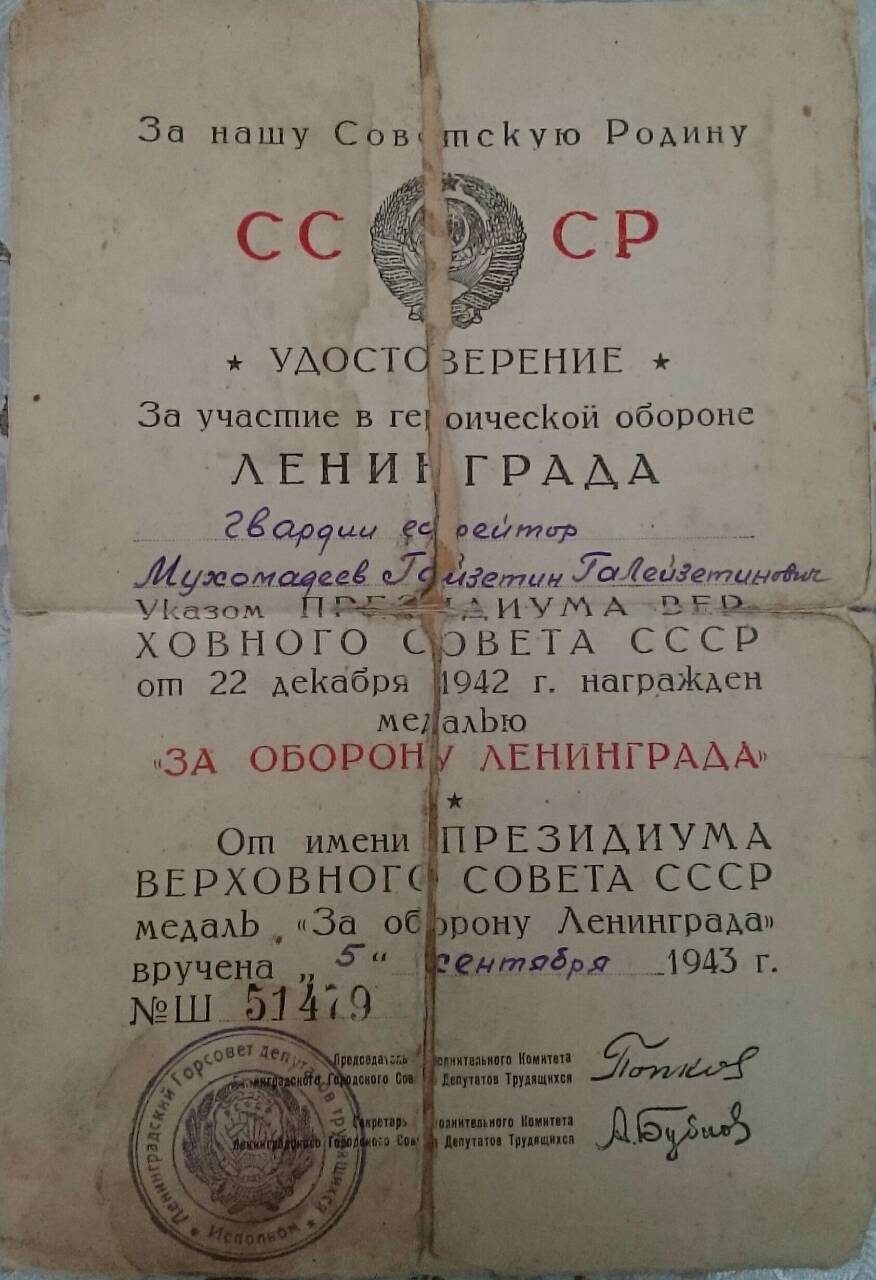 За нашу Советскую Родину
СССР
★ УДОСТОВЕРЕНИЕ ★
За участие в героической обороне
ЛЕНИНГРАДА
гвардии ефрейтор
Мухомадеев Гайзетин Галейзетинович
Указом ПРЕЗИДИУМА ВЕР
ХОВНОГО СОВЕТА СССР
от 22 декабря 1942 г. награжден
медалью
«ЗА ОБОРОНУ ЛЕНИНГРАДА»
★
От имени ПРЕЗИДИУМА
ВЕРХОВНОГО СОВЕТА СССР
медаль „За оборону Ленинграда»
вручена „5“ сентября 1943 г.
№Ш 51479
Председатель Исполнительного Комитета
Ленинградского Городского Совета Депутатов Трудящихся
Попков
Секретарь Исполнительного Комитета
Ленинградского Городского Совета Депутатов Трудящихся
А.Бубнов
Ленинградский Горсовет депутатов трудящихся
Исполком